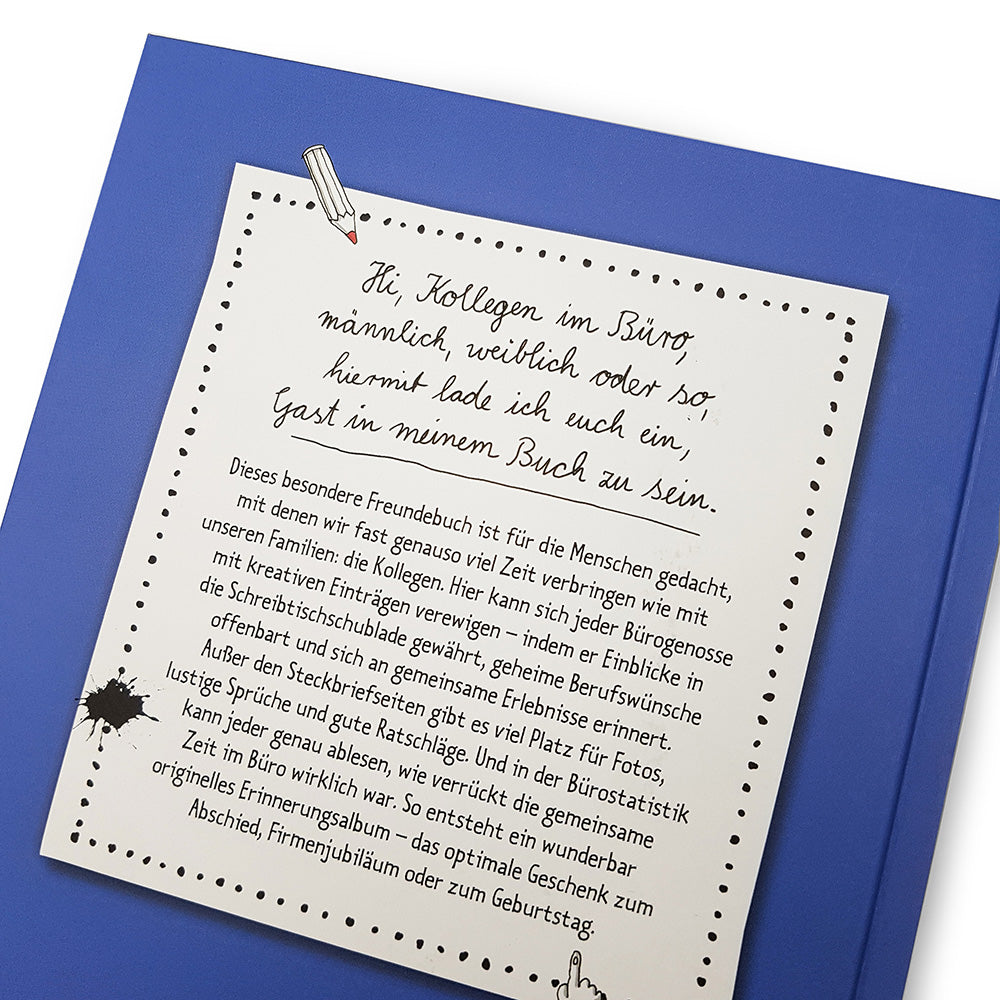 Hi, Kollegen im Büro,
männlich, weiblich oder so,
hiermit lade ich euch ein,
Gast in meinem Buch zu sein.
Dieses besondere Freundebuch ist für die Menschen gedacht,
mit denen wir fast genauso viel Zeit verbringen wie mit
unseren Familien: die Kollegen. Hier kann sich jeder Bürogenosse
mit kreativen Einträgen verewigen – indem er Einblicke in
die Schreibtischschublade gewährt, geheime Berufswünsche
offenbart und sich an gemeinsame Erlebnisse erinnert.
Außer den Steckbriefseiten gibt es viel Platz für Fotos,
lustige Sprüche und gute Ratschläge. Und in der Bürostatistik
kann jeder genau ablesen, wie verrückt die gemeinsame
Zeit im Büro wirklich war. So entsteht ein wunderbar
originelles Erinnerungsalbum – das optimale Geschenk zum
Abschied, Firmenjubiläum oder zum Geburtstag.